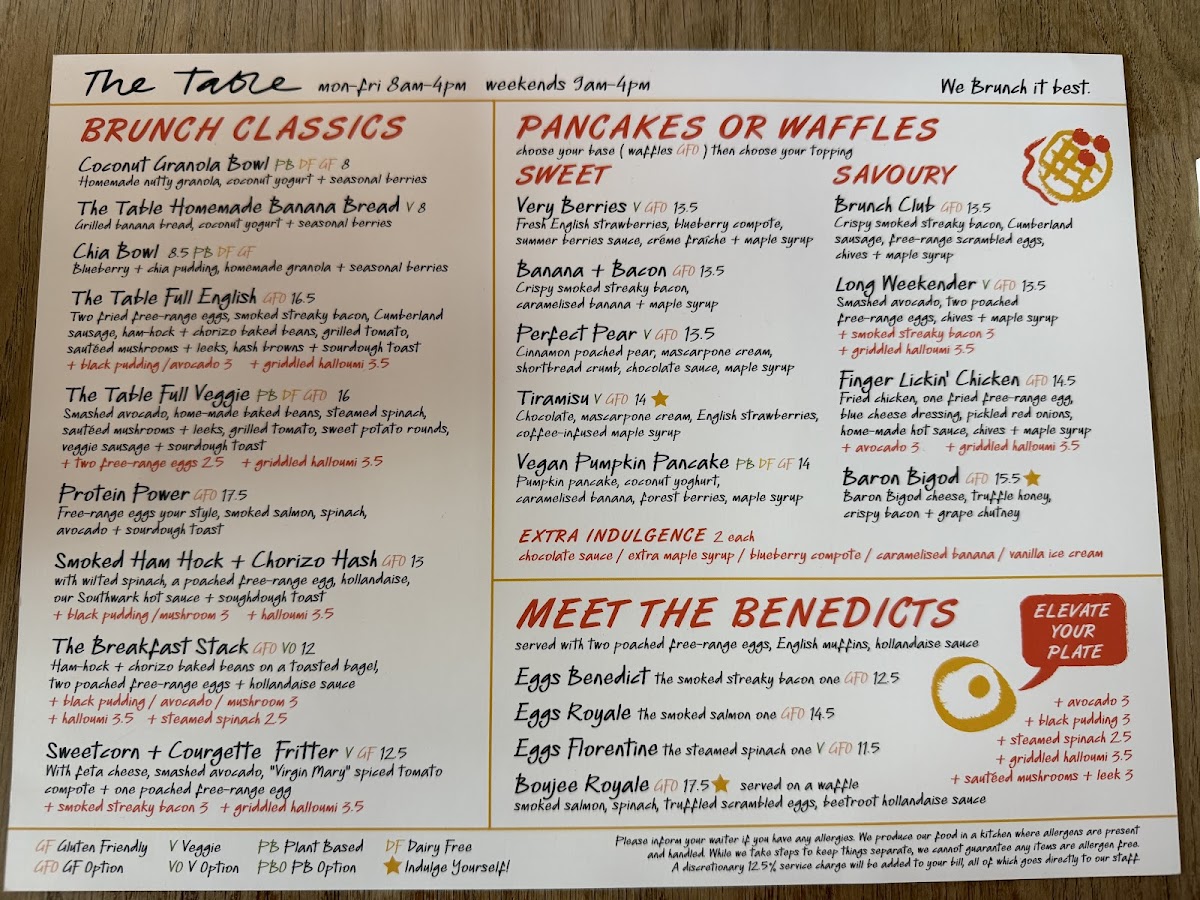 The Table mon-fri 8am-4pm weekends 9am-4pm
We Brunch it best.
BRUNCH CLASSICS
Coconut Granola Bowl PB DF GF 8
Homemade nutty granola, coconut yogurt + seasonal berries
The Table Homemade Banana Bread V 8
Grilled banana bread, coconut yogurt + seasonal berries
Chia Bowl 8.5 PB DF GF
Blueberry + chia pudding, homemade granola + seasonal berries
The Table Full English GFO 16.5
Two fried free-range eggs, smoked streaky bacon, Cumberland
sausage, ham-hock + chorizo baked beans, grilled tomato,
sautéed mushrooms + leeks, hash browns + sourdough toast
+ black pudding /avocado 3 + griddled halloumi 3.5
The Table Full Veggie PB DF GFO 16
Smashed avocado, home-made baked beans, steamed spinach,
sautéed mushrooms + leeks, grilled tomato, sweet potato rounds,
veggie sausage + sourdough toast
+ two free-range eggs 2.5 + griddled halloumi 3.5
Protein Power GFO 17.5
Free-range eggs your style, smoked salmon, spinach,
avocado + sourdough toast
Smoked Ham Hock + Chorizo Hash GFO 13
with wilted spinach, a poached free-range egg, hollandaise,
our Southwark hot sauce + soughdough toast
+ black pudding /mushroom 3 + halloumi 3.5
The Breakfast Stack GFO VO 12
Ham-hock + chorizo baked beans on a toasted bagel,
two poached free-range eggs + hollandaise sauce
+ black pudding / avocado / mushroom 3
+ halloumi 3.5 + steamed spinach 2.5
Sweetcorn + Courgette Fritter V GF 12.5
With feta cheese, smashed avocado, "Virgin Mary" spiced tomato
compote + one poached free-range egg
+ smoked streaky bacon 3 + griddled halloumi 3.5
PANCAKES OR WAFFLES
choose your base ( waffles GFO ) then choose your topping
SWEET
Very Berries V GFO 13.5
Fresh English strawberries, blueberry compote,
summer berries sauce, créme fraîche + maple syrup
Banana + Bacon GFO 13.5
Crispy smoked streaky bacon,
caramelised banana + maple syrup
Perfect Pear V GFO 13.5
Cinnamon poached pear, mascarpone cream,
shortbread crumb, chocolate sauce, maple syrup
Tiramisu V GFO 14
Chocolate, mascarpone cream, English strawberries,
coffee-infused maple syrup
Vegan Pumpkin Pancake PB DF GF 14
Pumpkin pancake, coconut yoghurt,
caramelised banana, forest berries, maple syrup
SAVOURY
Brunch Club GFO 13.5
Crispy smoked streaky bacon, Cumberland
sausage, free-range scrambled eggs,
chives + maple syrup
Long Weekender V GFO 13.5
Smashed avocado, two poached
free-range eggs, chives + maple syrup
+ smoked streaky bacon 3
+ griddled halloumi 3.5
Finger Lickin' Chicken GFO 14.5
Fried chicken, one fried free-range egg,
blue cheese dressing, pickled red onions,
home-made hot sauce, chives + maple syrup
+ avocado 3 + griddled halloumi 3.5
Baron Bigod GFO 15.5
Baron Bigod cheese, truffle honey,
crispy bacon + grape chutney
EXTRA INDULGENCE 2 each
chocolate sauce / extra maple syrup / blueberry compote / caramelised banana / vanilla ice cream
MEET THE BENEDICTS
served with two poached free-range eggs, English muffins, hollandaise sauce
Eggs Benedict the smoked streaky bacon one GFO 12.5
Eggs Royale the smoked salmon one GFO 14.5
Eggs Florentine the steamed spinach one V GFO 11.5
Boujee Royale GFO 17.5 served on a waffle
smoked salmon, spinach, truffled scrambled eggs, beetroot hollandaise sauce
ELEVATE
YOUR
PLATE
+ avocado 3
+ black pudding 3
+ steamed spinach 2.5
+ griddled halloumi 3.5
+ sautéed mushrooms + leek 3
GF Gluten Friendly V Veggie PB Plant Based DF Dairy Free
GFO GF Option VO V Option PBO PB Option Indulge Yourself!
Please inform your waiter if you have any allergies. We produce our food in a kitchen where allergens are present
and handled. While we take steps to keep things separate, we cannot guarantee any items are allergen free.
A discretionary 12.5% service charge will be added to your bill, all of which goes directly to our staff